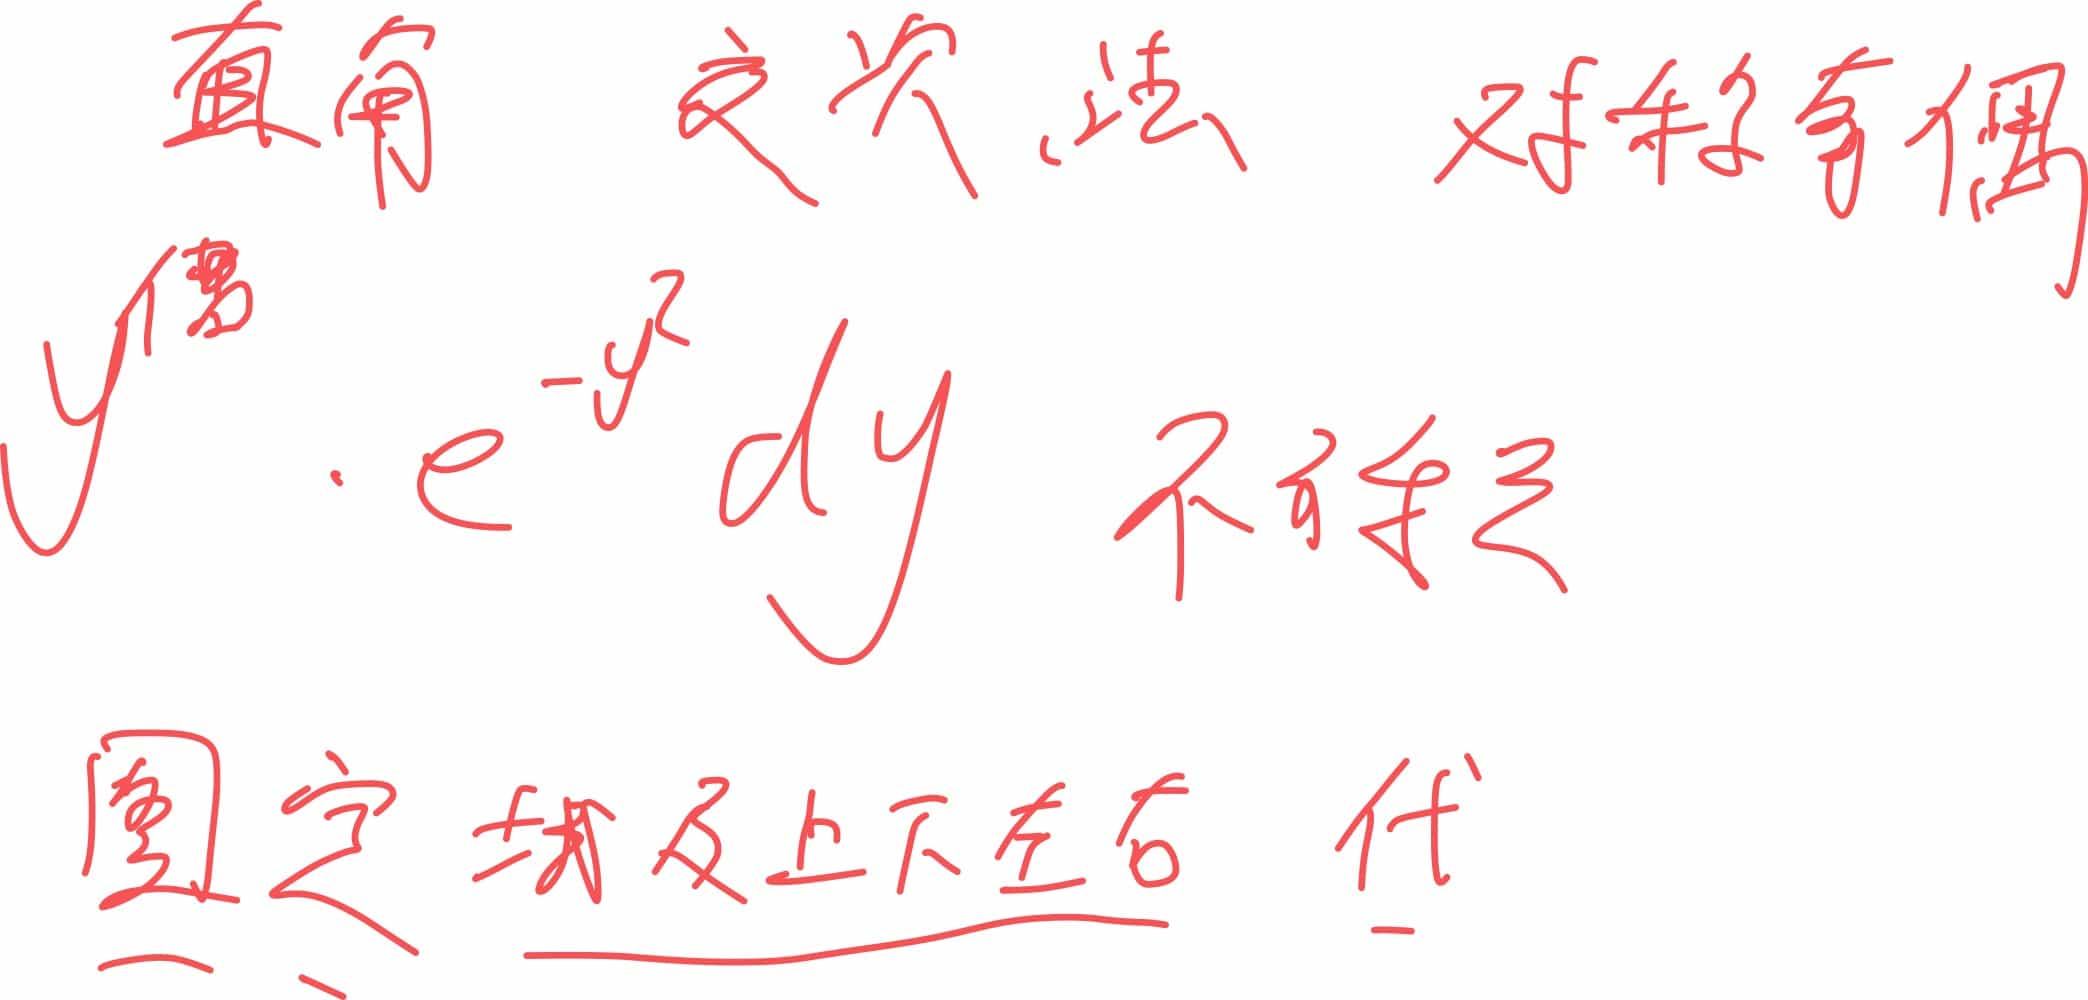 直角 交券法 对称奇偶
y^偶 · e^{-y^2} dy 不可积
画定域及上下左右 代